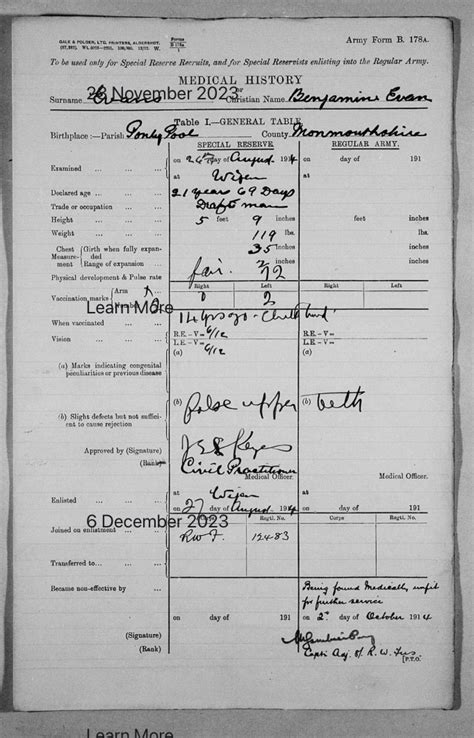 GALE & POLDEN, LTD. PRINTERS, ALDERSHOT.
Forms
B 178A
Army Form B. 178A.
To be used only for Special Reserve Recruits, and for Special Reservists enlisting into the Regular Army.
MEDICAL HISTORY
28 November 2023
Surname Evans Christian Name Benjamine Evan
Table I.—GENERAL TABLE.
Birthplace :—Parish Ponty Pool County Monmouthshire
SPECIAL RESERVE. REGULAR ARMY.
Examined on 26th day of August 1914 on day of 191
at Wigan at
Declared age 21 Years 69 Days
Trade or occupation Draftsman
Height 5 feet 9 inches feet inches
Weight 119 lbs. lbs.
Chest Measurement
Girth when fully expanded 35 inches inches
Range of expansion 2 inches inches
Physical development & Pulse rate fair. 72
Vaccination marks
Right Left Right Left
Arm
Number 0 2
Learn More
When vaccinated 14 yrs ago - Childhood
Vision R.E.—V= 6/12 R.E.—V=
L.E.—V= 6/12 L.E.—V=
(a) Marks indicating congenital peculiarities or previous disease (a) (a)
(b) Slight defects but not sufficient to cause rejection (b) False upper (b) teth
Approved by (Signature)
(Rank) Civil Practitioner
Medical Officer. Medical Officer.
at Wigan at
Enlisted on 27 day of August 1914 on day of 191
6 December 2023
Regtl. No. Corps Regtl. No.
Joined on enlistment R W F. 12483
Transferred to
Became non-effective by Being found Medically unfit
for further service
on day of 191 on 2nd day of October 1914
(Signature)
(Rank) Capt. Adj. R. W. Fus.
[P.T.O.
Learn More